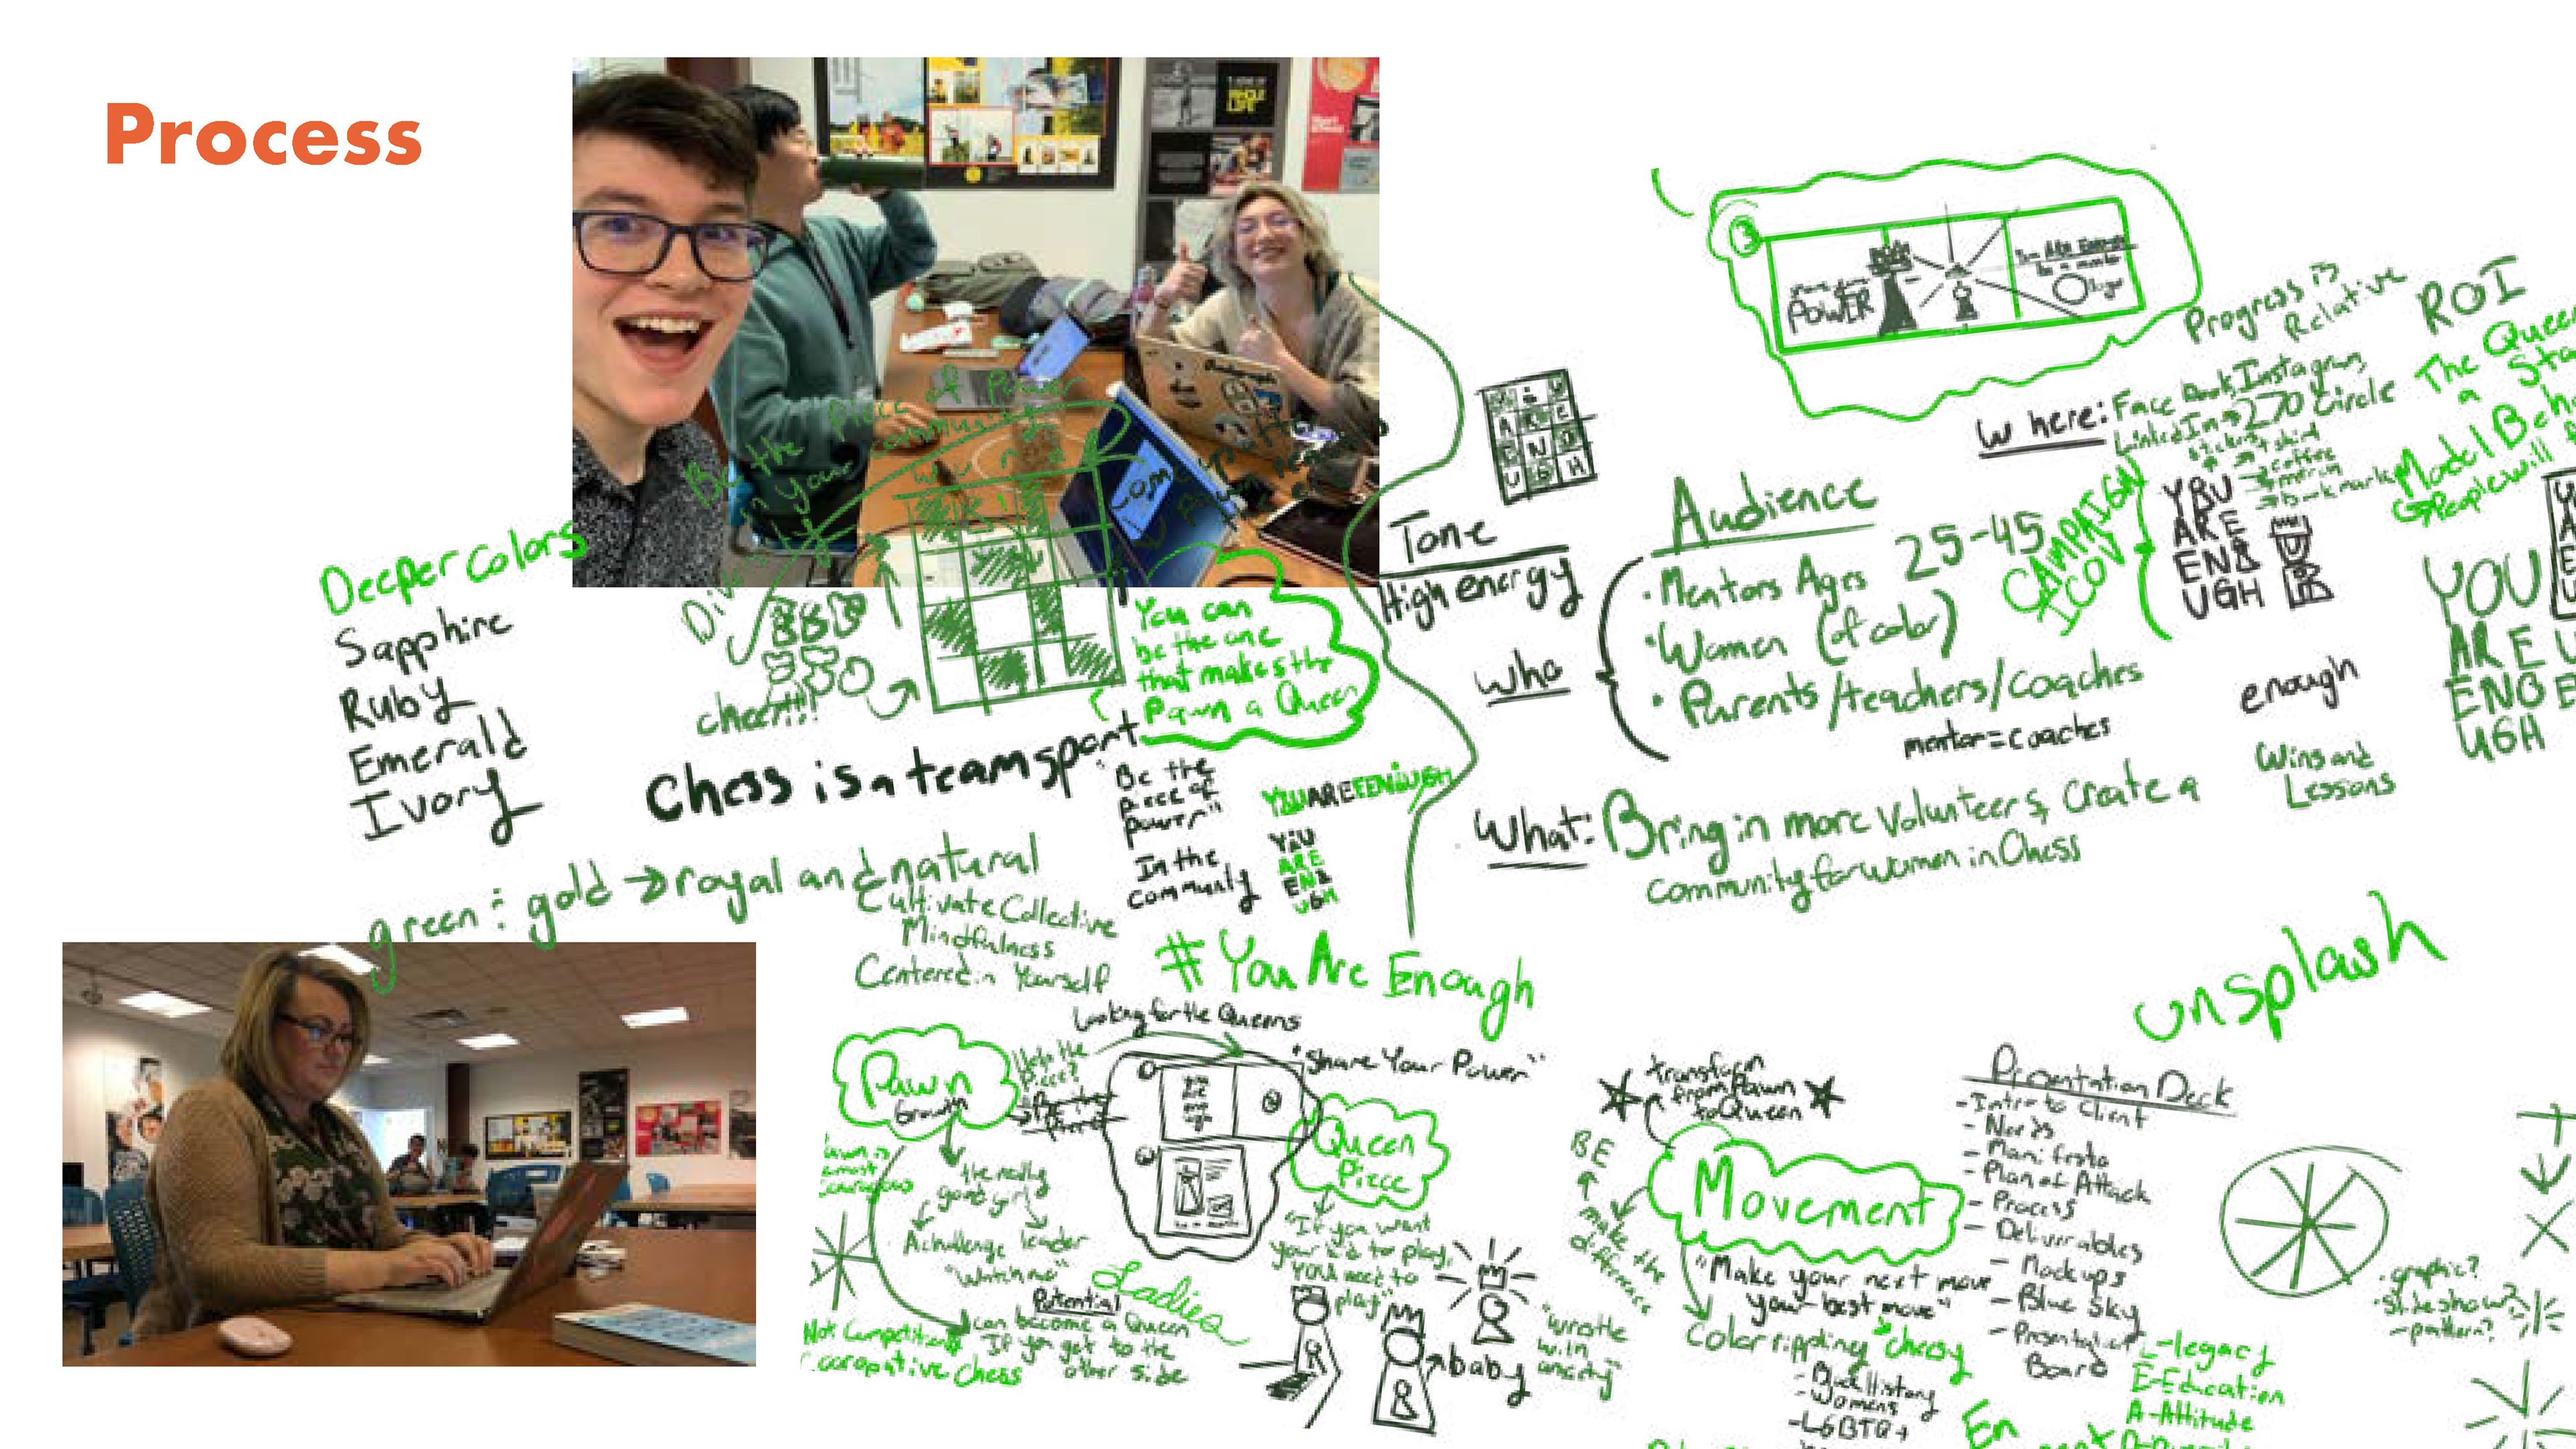 Process
WHOLE
LIFE
Be the Piece of Power
in your community
Progress is
Relative
ROI
The Queen
a
POWER
Where: Facebook, Instagram,
LinkedIn → 270 Circle
YOU
ARE
ENO
UGH
CAMPAIGN
Tone
High energy
Audience
Who
• Mentors Ages 25-45
• Women (of color)
• Parents/teachers/coaches
mentor = coaches
enough
Wins and
Lessons
YOU
ARE
ENO
UGH
What: Bring in more volunteers, create a
community for women in Chess
Deeper colors
Sapphire
Ruby
Emerald
Ivory
cheer!!!
You can
be the one
that makes the
Pawn a Queen
Chess is a team sport
"Be the
piece of
power"
In the
community
YOU ARE ENOUGH
YOU
ARE
ENO
UGH
green : gold → royal and natural
Cultivate Collective
Mindfulness
Centered in Yourself
#You Are Enough
unsplash
Looking for the Queens
"Share Your Power"
Pawn
Growth
Queen
Piece
the really
good girl
A challenge
leader
"Watch me"
Ladies
Potential
can become a Queen
If you get to the
other side
Not Competition
Cooperative Chess
"If you want
your kid to play,
you need to
play"
baby
"wrestle
with
anxiety"
transform
from Pawn
to Queen
BE
make the
difference
Movement
"Make your next move
your best move"
cheesy
Color rippling
- Black History
- Womens
- LGBTQ+
Presentation Deck
- Intro to Client
- Needs
- Manifesto
- Plan of Attack
- Process
- Deliverables
- Mockups
- Blue Sky
- Presentation
Board
L-legacy
E-Education
A-Attitude
• graphic?
• slideshow?
- pattern?
En